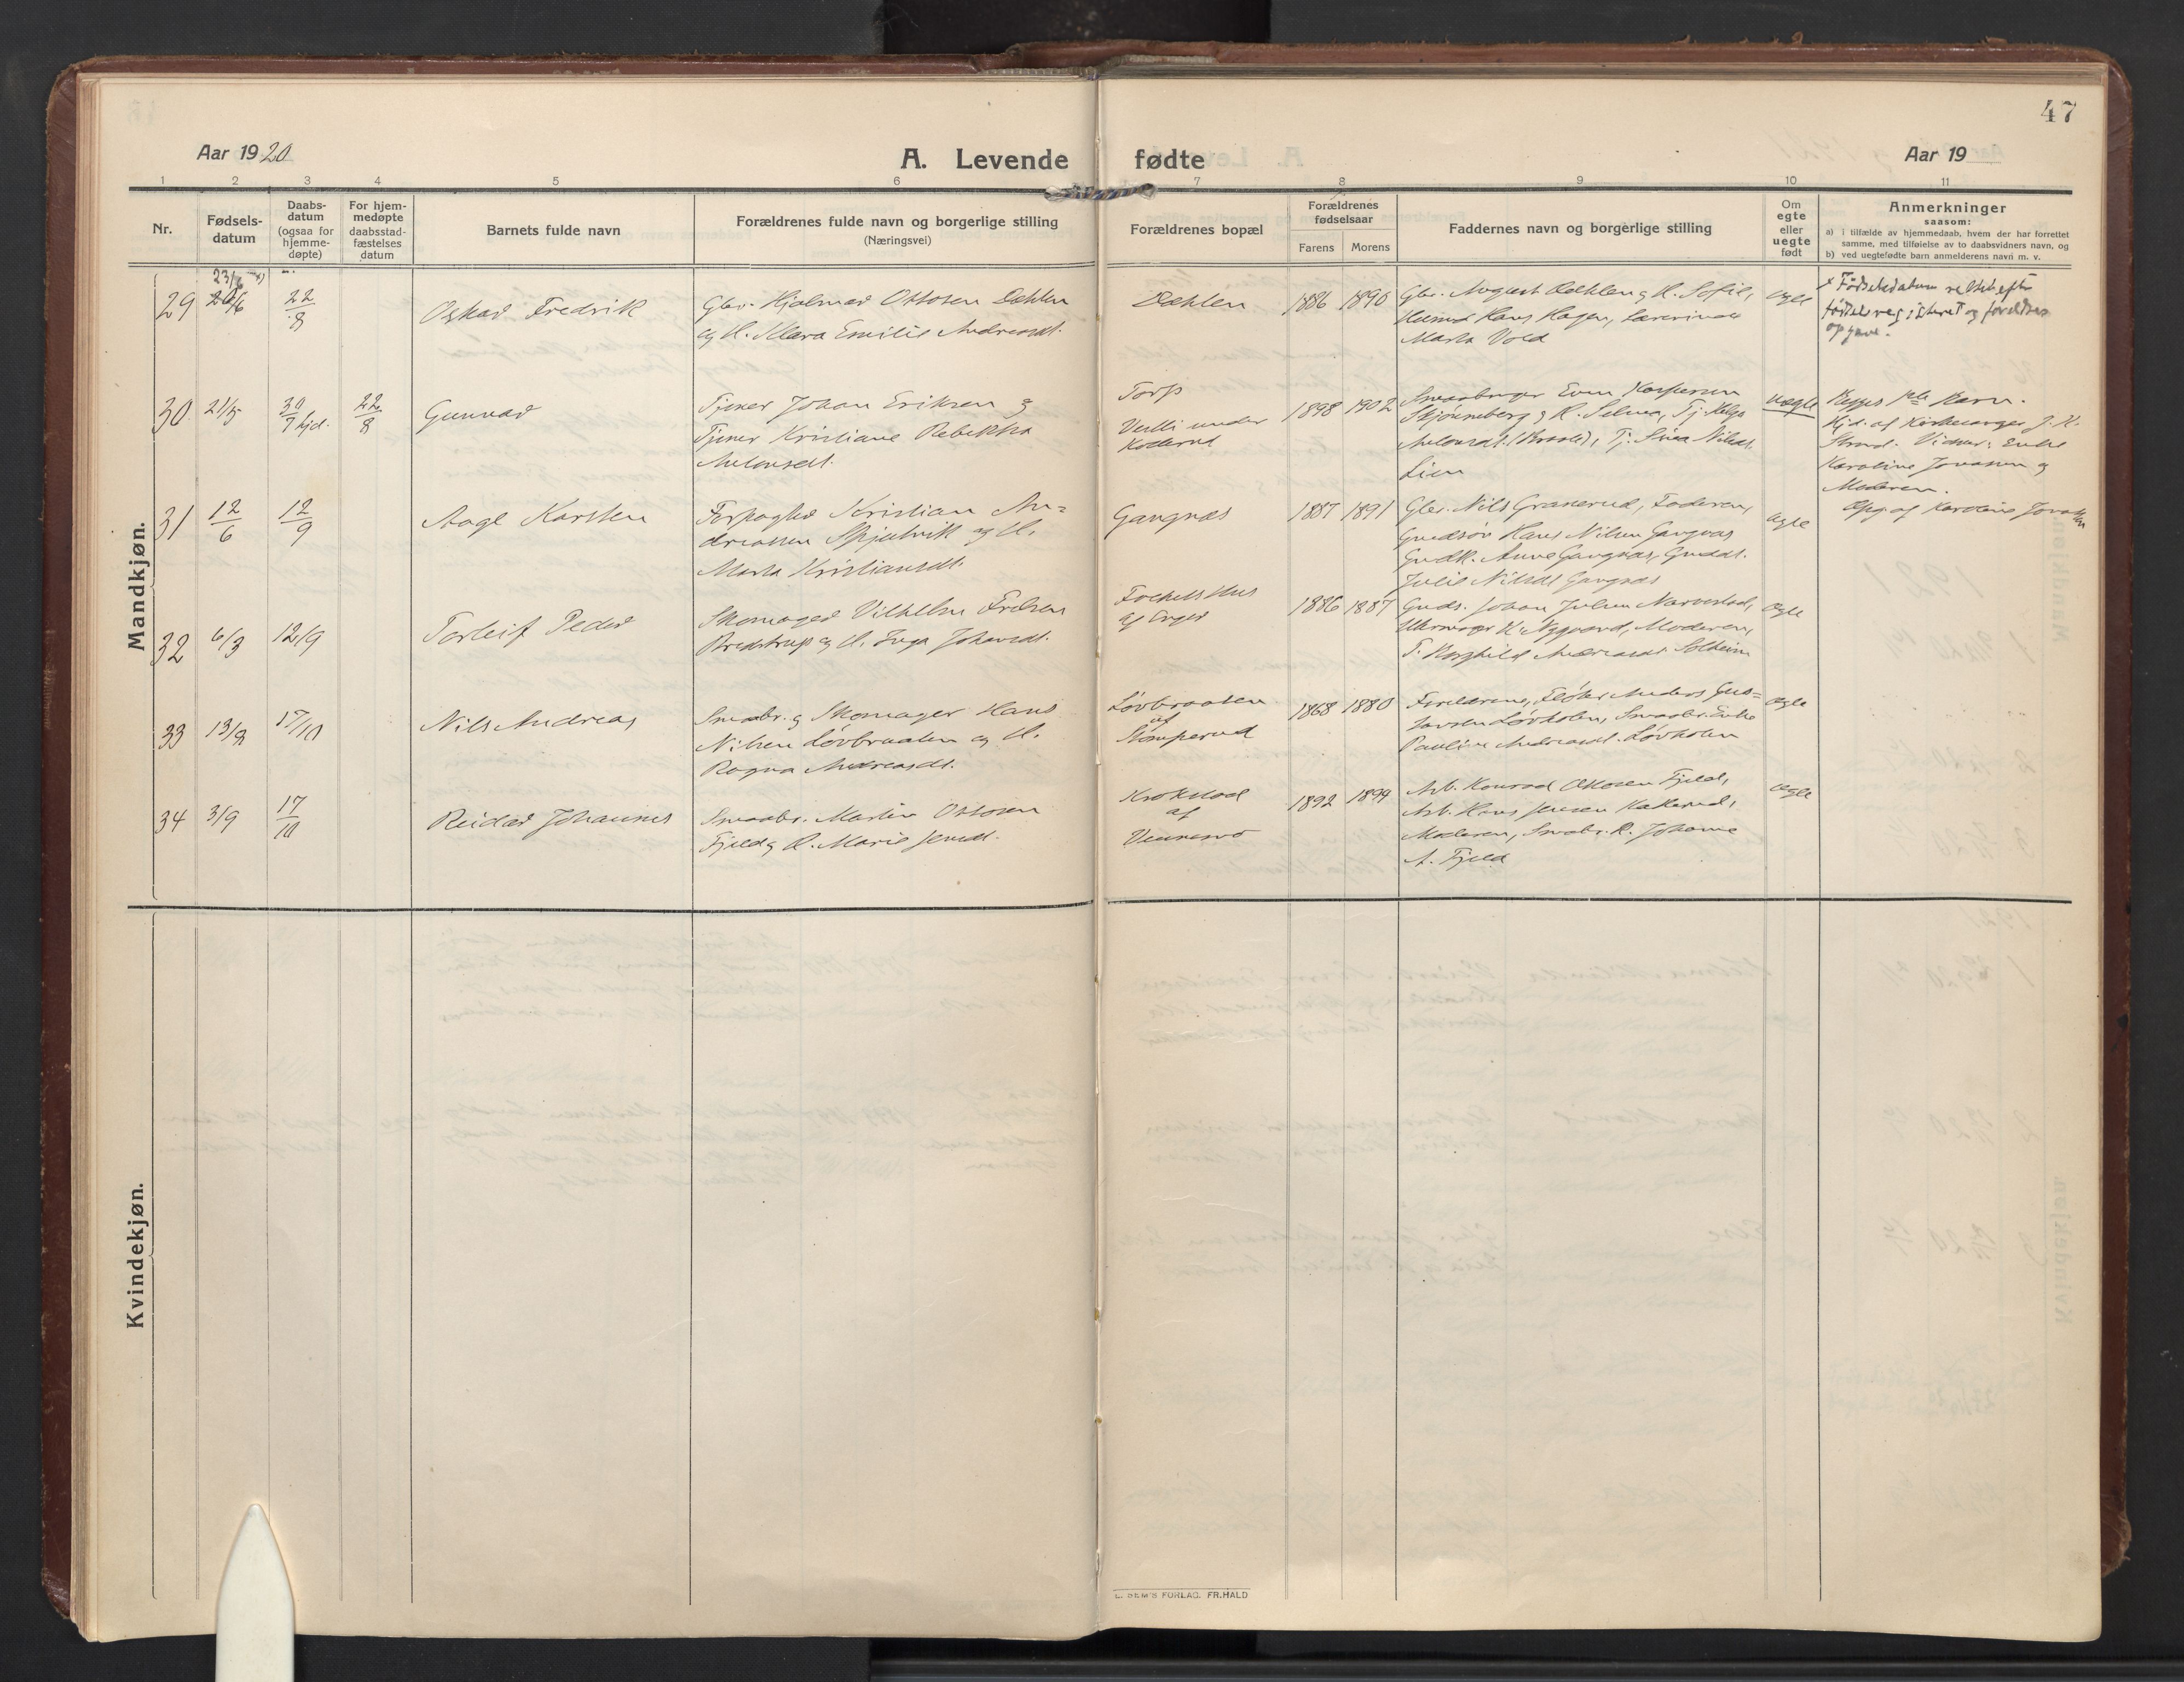 47
Aar 1920
A. Levende fødte
Aar 19
1 2 3 4 5 6 7 8 9 10 11
Nr.
Fødsels-
datum
Daabs-
datum
(ogsaa for
hjemme-
døpte)
For hjem-
medøpte
daabsstad-
fæstelses
datum
Barnets fulde navn
Forældrenes fulde navn og borgerlige stilling
(Næringsvei)
Forældrenes bopæl
Forældrenes
fødselsaar
Farens Morens
Faddernes navn og borgerlige stilling
Om
egte
eller
uegte
født
Anmerkninger
saasom:
a) i tilfælde av hjemmedaab, hvem der har forrettet
samme, med tilføielse av to daabsvidners navn, og
b) ved uegtefødte barn anmelderens navn m. v.
Mandkjøn.
23/6 x)
29 20/6 22/8 Oskar Fredrik
Gbr. Hjalmar Ottosen Dæhlen
og H. Klara Emilie Andreasdt.
Dæhlen 1886 1890
Gbr. August Dæhlen og H. Sofie,
Hans Hagen, Lærerinde
Marta Vold
egte
x Fødselsdatum rettet efter
fødselsregisteret og foreldres
opgave.
30 21/5 30/7 hjd. 22/8 Gunnar
Tjener Johan Eriksen og
Tjener Kristiane Rebekka
Antonsdt.
Torp
under
Koderud
1898 1902
Smaabruger Even Kaspersen
Skjønneberg og K. Selma, Tj. Helga
Antonsdt. Tj.
Lien
uegte
barn.
Hjd. af Kirkesanger J. K.
Strand. Vidner: Enke
Karoline Jonassen og
Moderen.
Opg. af Karoline Jonassen
31 12/6 12/9 Aage Karsten
Forpagter Kristian An=
dreassen Skjulvik og H.
Marta Kristiansdt.
Gangnæs 1887 1891
Gbr. Nils Grasserud, Faderen,
Gaardsør Hans Nilsen Gangnæs
Gaardk. Anne Gangnæs, Gaarddt.
Julie Nilsdt Gangnæs
egte
32 6/3 12/9 Torleif Peder
Skomager Vilhelm
Bredstrup og H. Inga Johansdt.
af Enger
1886 1887
Gards. Johan Julius
Urmager K. Nygaard, Moderen,
T. Borghild Andreasdt. Solheim
egte
33 13/8 17/10 Nils Andreas
Smaabr. og Skomager Hans
Nilsen Løvbraaten og H.
Ragna Andreasdt.
Løvbraaten
af
Stomperud
1868 1880
Foreldrene, Fløter Anders Gus=
tavsen Løvholen, Smaabr. Enke
Pauline Andreasdt. Løvholen
egte
34 3/9 17/10 Reidar Johannes
Smaabr. Martin Ottosen
Fjeld og H. Marie Jensdt.
Krokstad
af
1892 1899
Arb. Konrad Ottosen Fjeld,
Arb. Hans Jensen Kakerud,
Moderen, Smabr. K. Johanne
A. Fjeld
egte
Kvindekjøn.
E. SEM'S FORLAG. FR.HALD